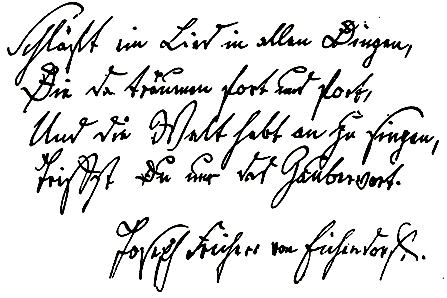 Schläft ein Lied in allen Dingen,
Die da träumen fort und fort,
Und die Welt hebt an zu singen,
Triffst Du nur das Zauberwort.
Joseph Freiherr von Eichendorff.